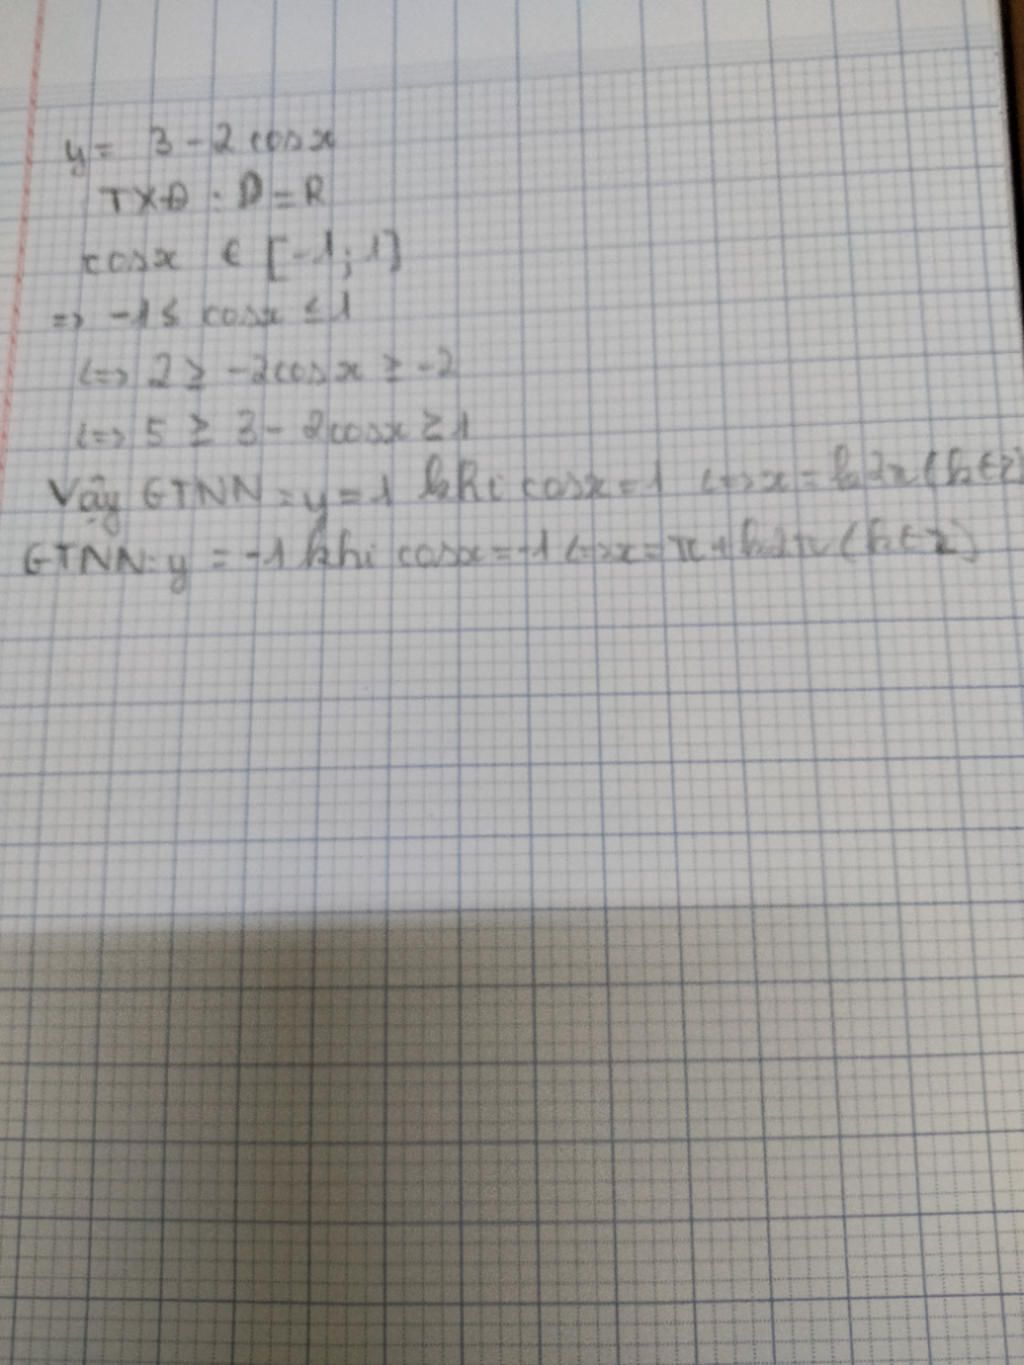 y = 3 - 2 cosx
TXĐ : D = R
cosx ∈ [-1; 1]
=> -1 ≤ cosx ≤ 1
<=> 2 ≥ -2cosx ≥ -2
<=> 5 ≥ 3 - 2cosx ≥ 1
Vậy GTNN = y = 1 khi cosx = 1 <=> x = k2π (k ∈ Z)
GTNN: y = -1 khi cosx = -1 <=> x = π + k2π (k ∈ Z)